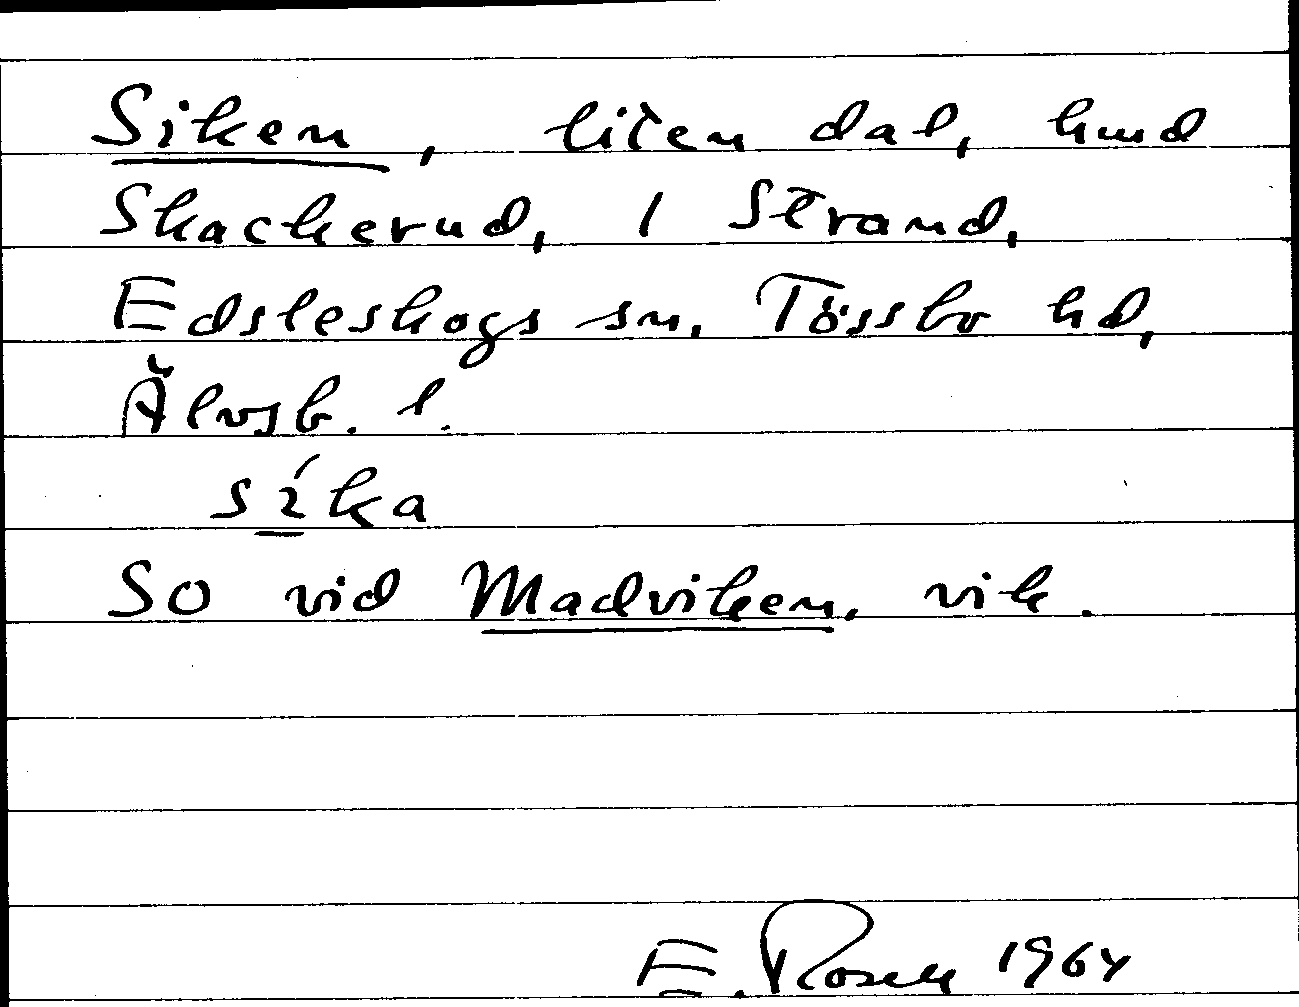 Siken, liten dal, hmd
Skackerud, 1 Strand,
Edsleskogs sn, Tössbo hd,
Älvsb. l.
síka
SO vid Madviken, vik.
E. Rosell 1964